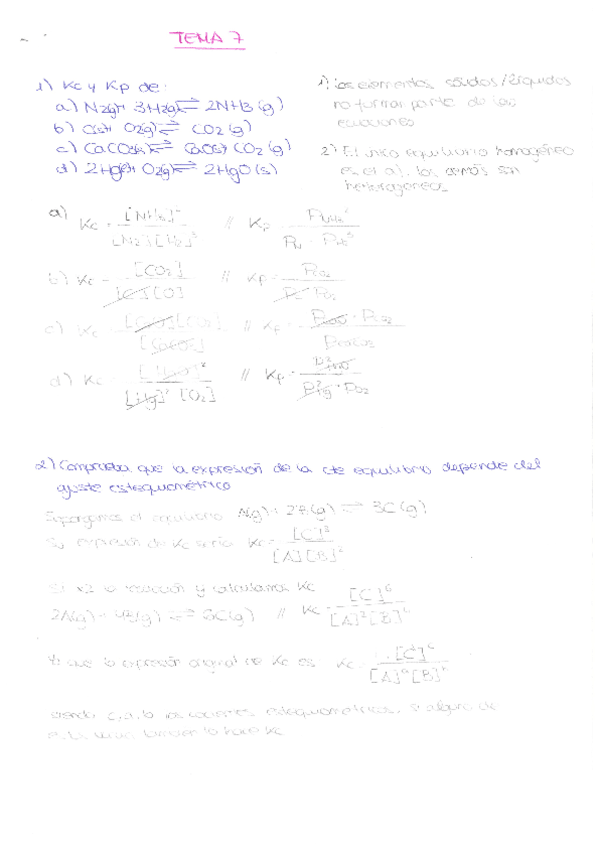 TEMA 7
1) Kc y Kp de:
a) N2(g)+ 3H2(g) ⇌ 2NH3 (g)
b) C(s)+ O2(g) ⇌ CO2 (g)
c) CaCO3(s) ⇌ CaO(s)+ CO2 (g)
d) 2Hg(l)+ O2(g) ⇌ 2HgO (s)
1) Los elementos sólidos/líquidos
no forman parte de las
ecuaciones
2) El único equilibrio homogéneo
es el a), los demás son
heterogéneos
a) Kc = [NH3]² / [N2][H2]³ // Kp =
b) Kc = [CO2] / [C][O] // Kp = PCO2
c) Kc = // Kp =
d) Kc = / [Hg]² [O2] // Kp =
2) Comprueba que la expresión de la cte equilibrio depende del
ajuste estequiométrico
Supongamos el equilibrio A(g)+ 2B(g) ⇌ 3C (g)
Su expresión de Kc sería Kc = [C]³ / [A][B]²
Si x2 la reacción y calculamos Kc
2A(g)+ 4B(g) ⇌ 6C(g) // Kc = [C]⁶ / [A]²[B]⁴
Ya que la expresión original de Kc es Kc = [C]ᶜ / [A]ᵃ[B]ᵇ
siendo c, a, b los cocientes estequiométricos, si alguno de